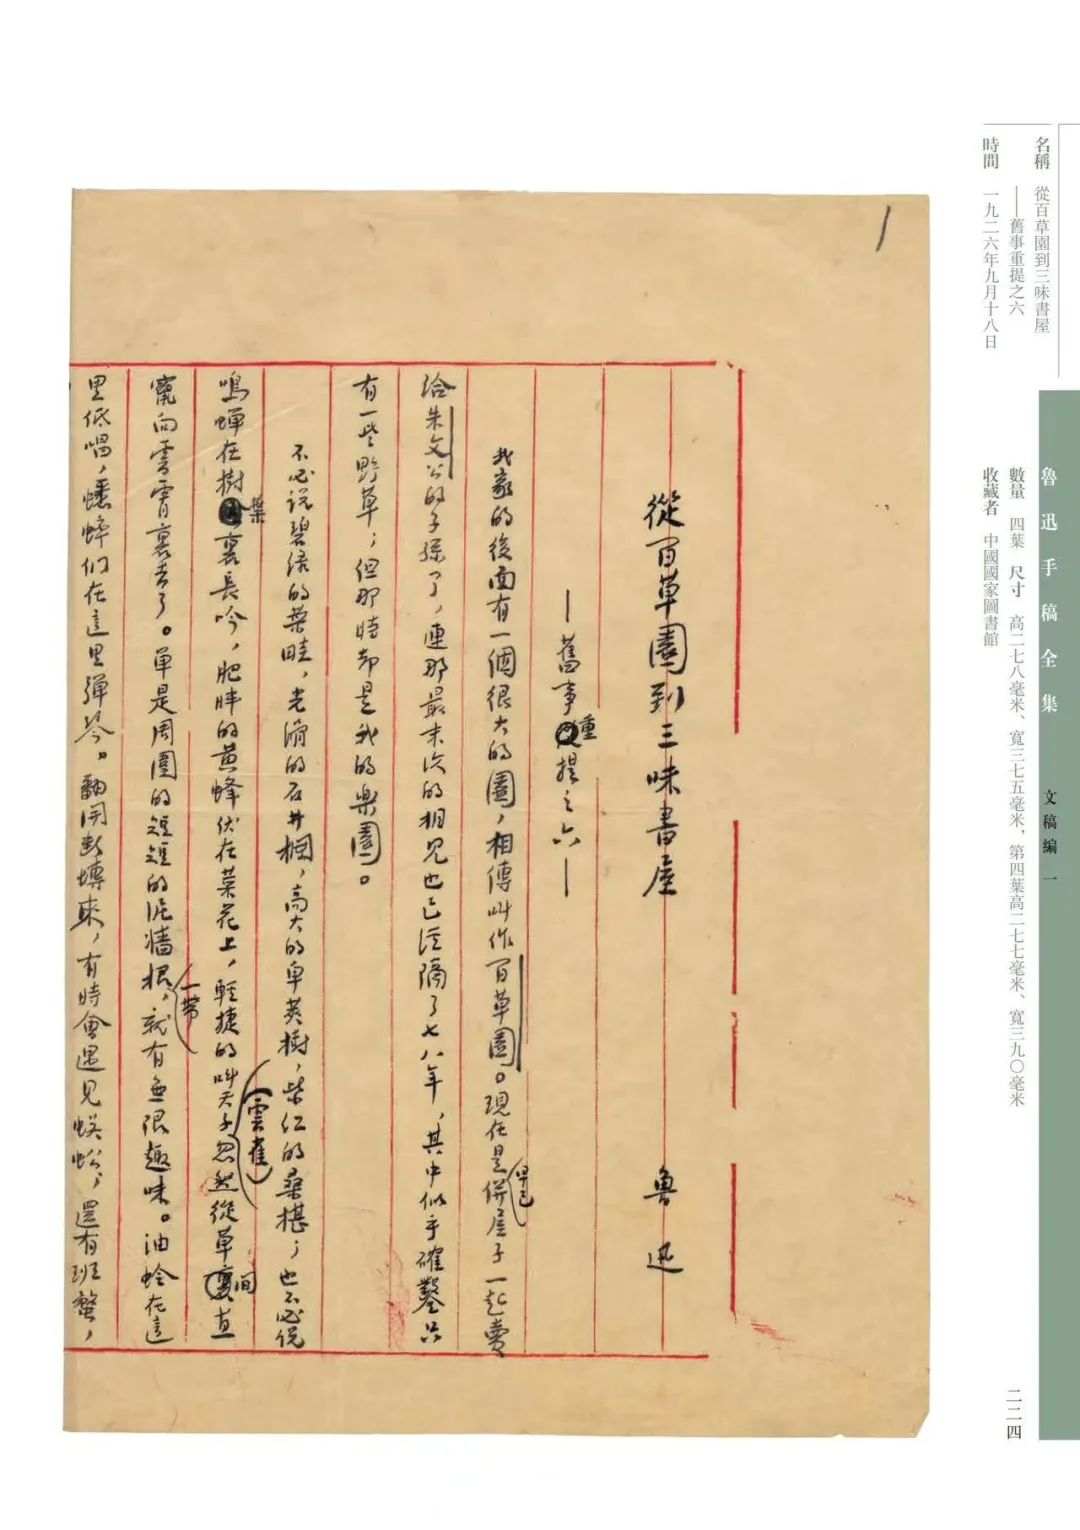 名稱 從百草園到三味書屋
——舊事重提之六
時間 一九二六年九月十八日
魯迅手稿全集 文稿編 一
數量 四葉 尺寸 高二七八毫米、寬三七五毫米，第四葉高二七七毫米、寬三九〇毫米
收藏者 中國國家圖書館
二二四
1
從百草園到三味書屋 魯迅
—舊事重提之六—
我家的後面有一個很大的園，相傳叫作百草園。現在是早已併屋子一起賣
給朱文公的子孫了，連那最末次的相見也已经隔了七八年，其中似乎確鑿只
有一些野草；但那時却是我的樂園。
不必说碧绿的菜畦，光滑的石井欄，高大的皁荚樹，紫红的桑椹；也不必说
鳴蝉在樹葉裏長吟，肥胖的黄蜂伏在菜花上，輕捷的叫天子(雲雀)忽然從草間直
竄向雲霄裏去了。单是周圍的短短的泥墻根一帶，就有無限趣味。油蛉在這
里低唱，蟋蟀们在這里弹琴。翻開断塼來，有時會遇見蜈蚣；還有斑蝥，